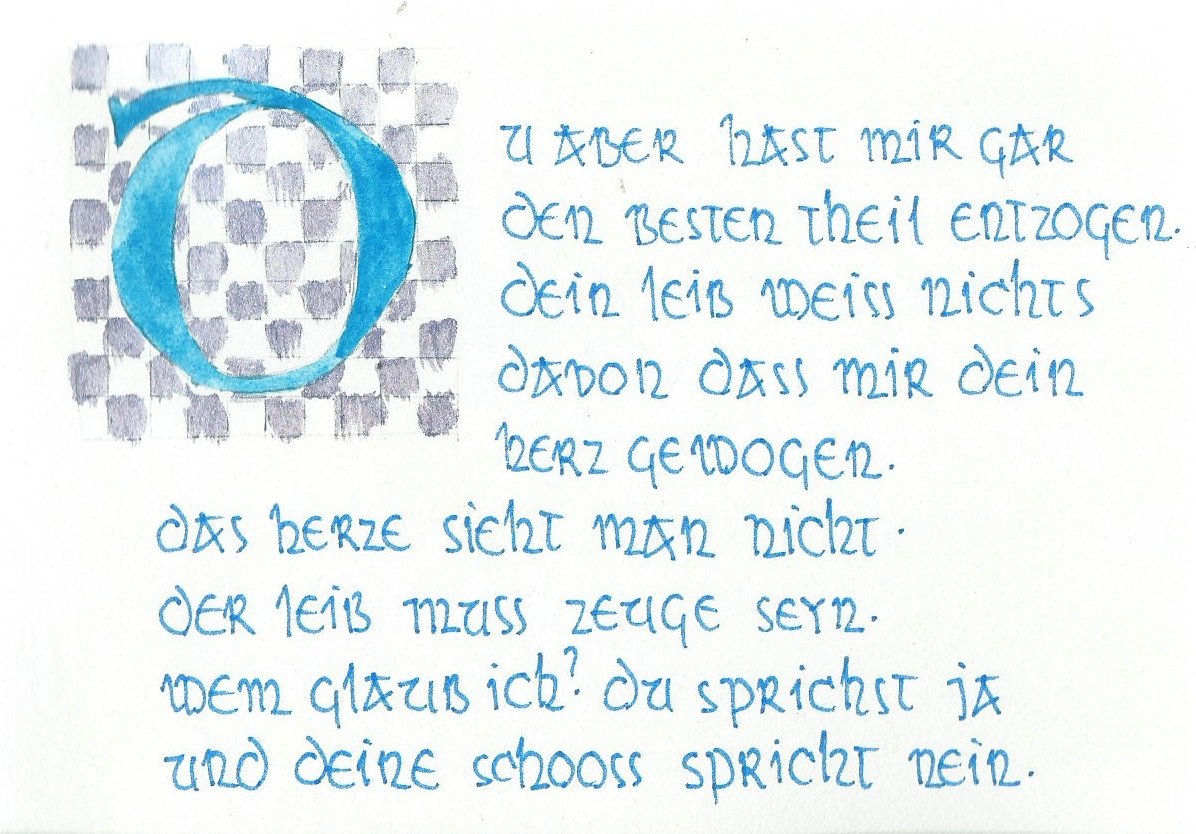 DU ABER HAST MIR GAR
DEN BESTEN THEIL ENTZOGEN.
DEIN LEIB WEISS NICHTS
DAVON DASS MIR DEIN
HERZ GEWOGEN.
DAS HERZE SIEHT MAN NICHT.
DER LEIB MUSS ZEUGE SEYN.
WEM GLAUB ICH? DU SPRICHST JA
UND DEINE SCHOOSS SPRICHT NEIN.